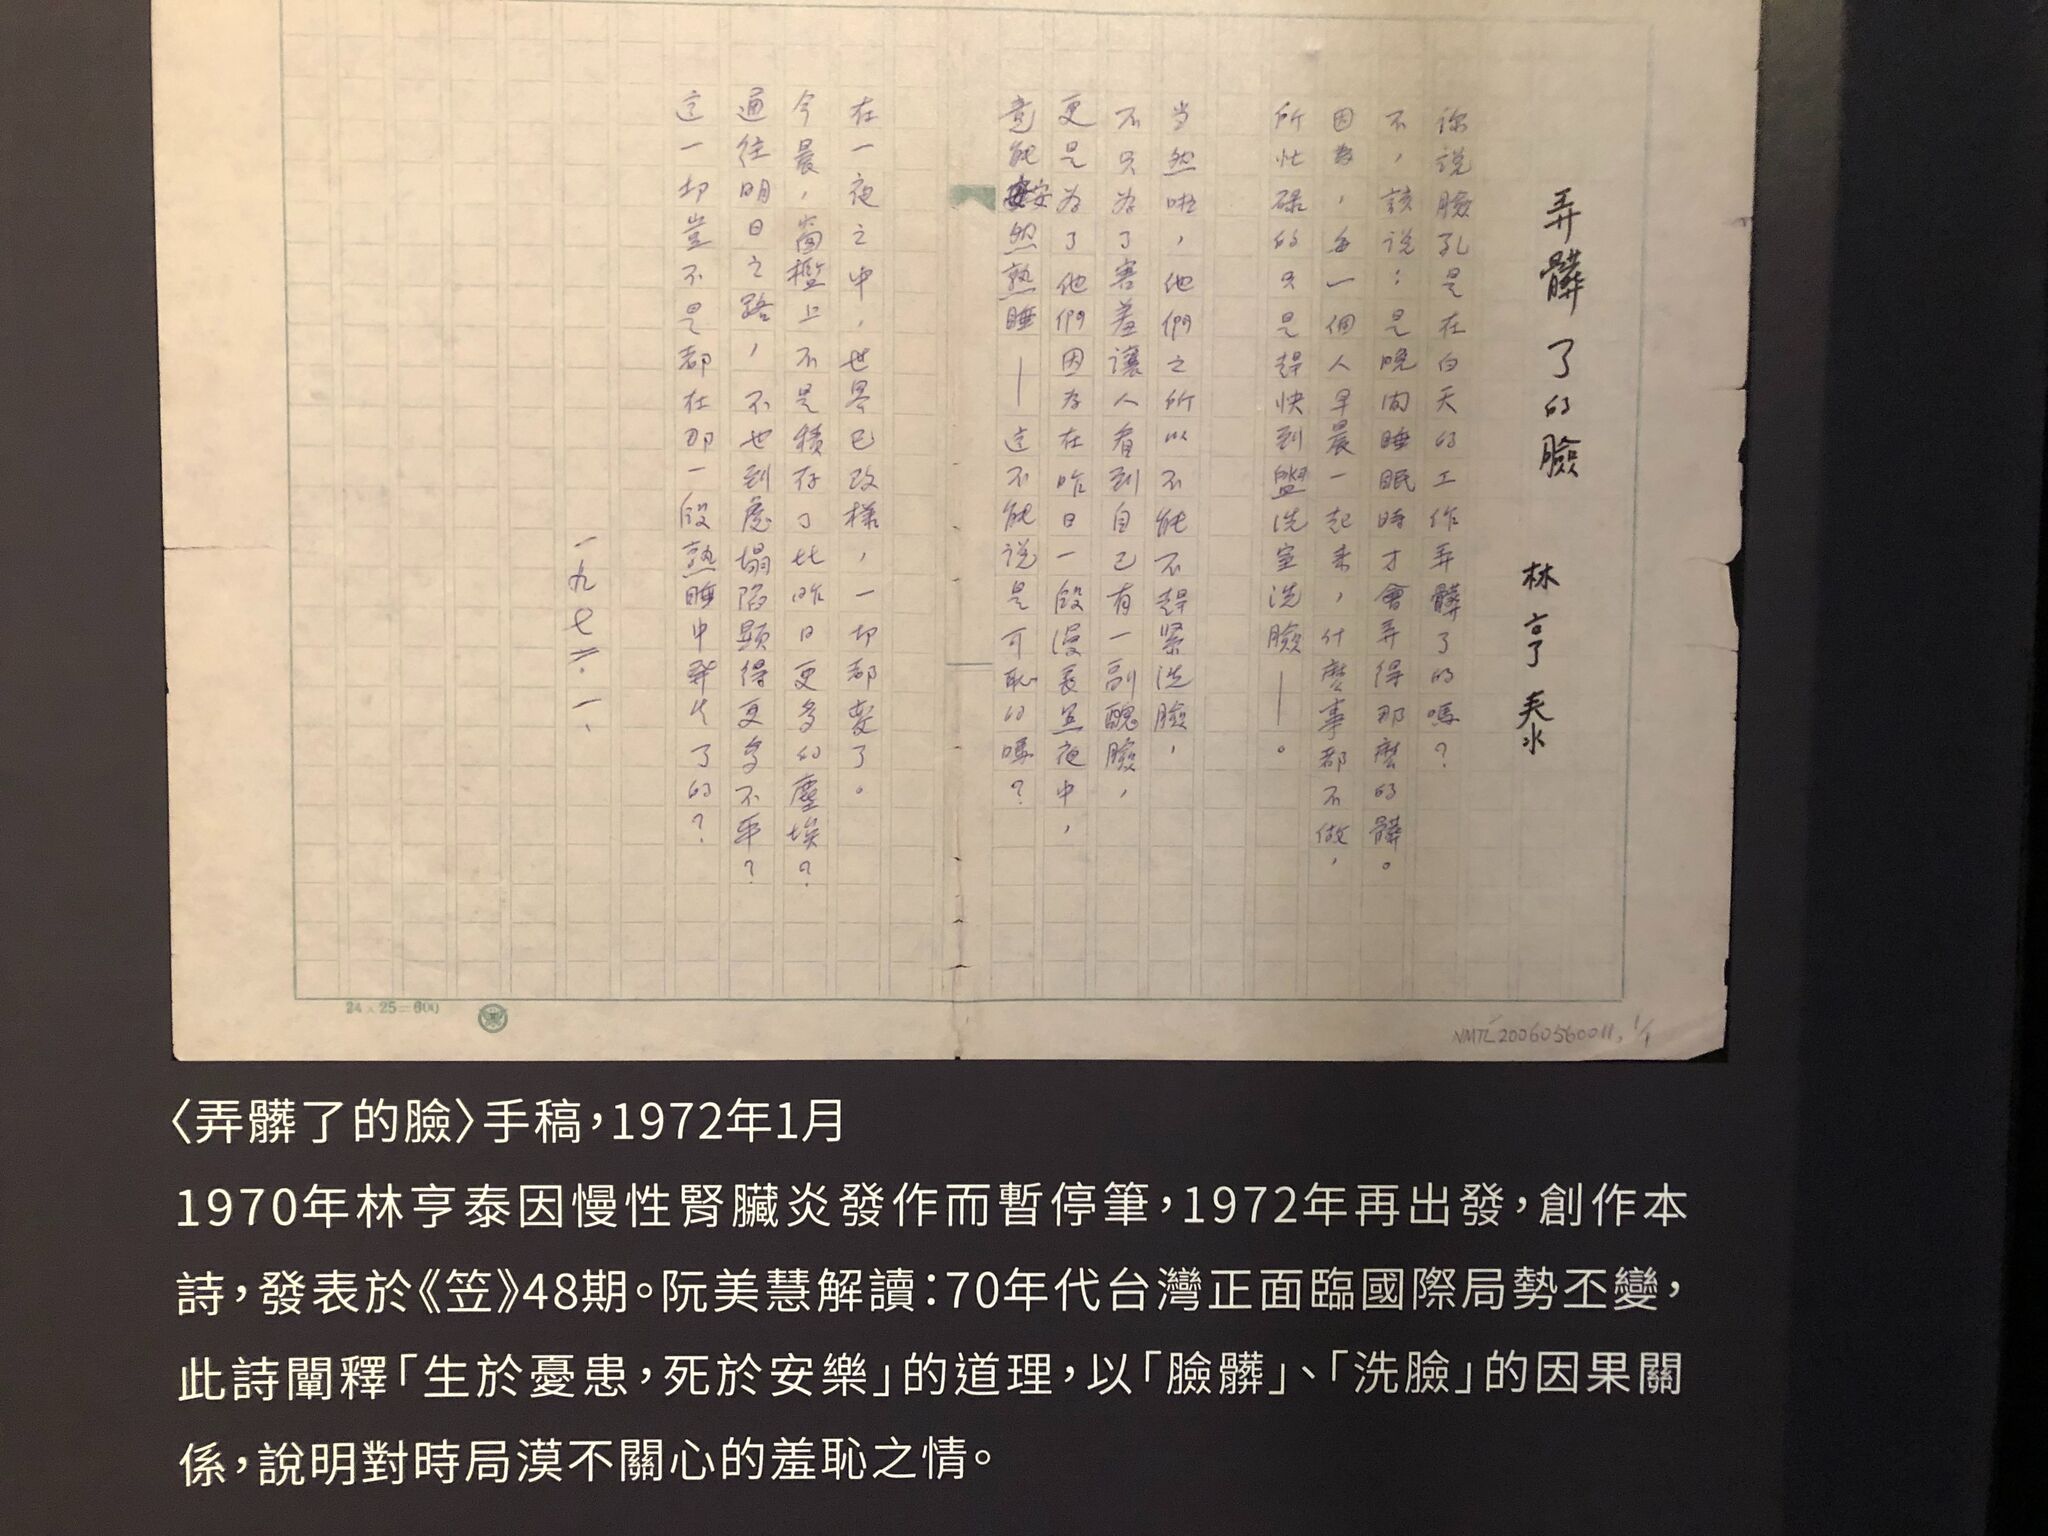 弄髒了的臉
林亨泰
你說臉孔是在白天的工作弄髒了的嗎？
不，該说：是晚间睡眠時才會弄得那麽的髒。
因為，每一個人早晨一起来，什麽事都不做，
所忙碌的只是趕快到盥洗室洗臉——。
当然啦，他們之所以不能不趕緊洗臉，
不只为了害羞讓人看到自己有一副醜臉，
更是为了他們因为在昨日一段漫長黑夜中，
竟能安然熟睡——这不能说是可恥的嗎？
在一夜之中，世界已改樣，一切都变了。
今晨，窗檻上不是積存了比昨日更多的塵埃？
通往明日之路，不也到處塌陷顯得更多不平？
这一切豈不是都在那一段熟睡中發生了的？
一九七二．一．
24×25=600
NMTL20060560011, 1/1
〈弄髒了的臉〉手稿，1972年1月
1970年林亨泰因慢性腎臟炎發作而暫停筆，1972年再出發，創作本
詩，發表於《笠》48期。阮美慧解讀：70年代台灣正面臨國際局勢丕變，
此詩闡釋「生於憂患，死於安樂」的道理，以「臉髒」、「洗臉」的因果關
係，說明對時局漠不關心的羞恥之情。